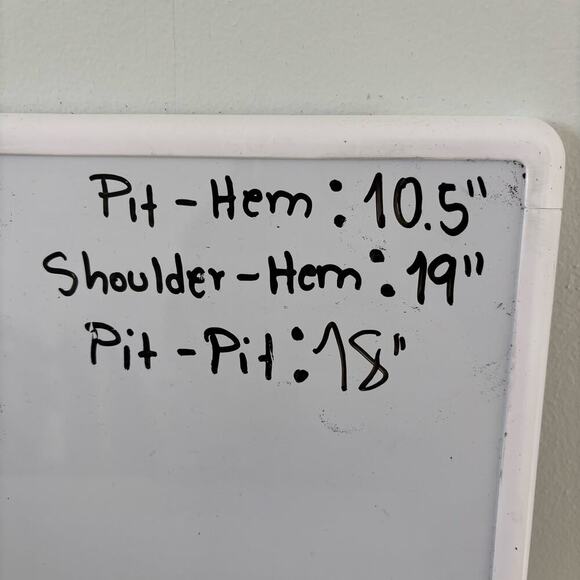 Pit - Hem : 10.5"
Shoulder - Hem : 19"
Pit - Pit : 18"